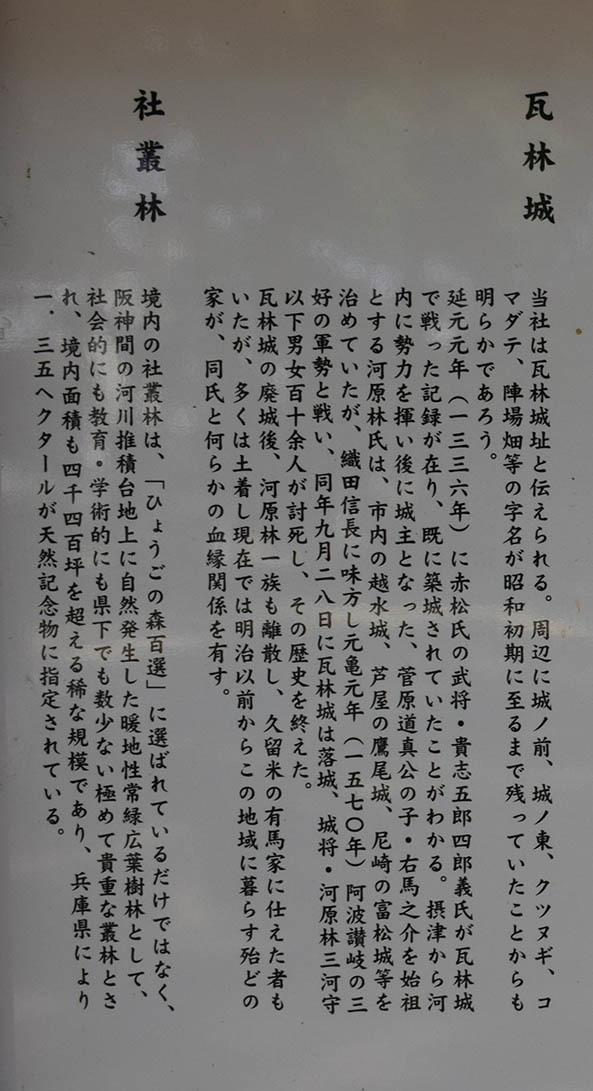 瓦林城
当社は瓦林城址と伝えられる。周辺に城ノ前、城ノ東、クツヌギ、コ
マダテ、陣場畑等の字名が昭和初期に至るまで残っていたことからも
明らかであろう。
延元元年（一三三六年）に赤松氏の武将・貴志五郎四郎義氏が瓦林城
で戦った記録が在り、既に築城されていたことがわかる。摂津から河
内に勢力を揮い後に城主となった、菅原道真公の子・右馬之介を始祖
とする河原林氏は、市内の越水城、芦屋の鷹尾城、尼崎の富松城等を
治めていたが、織田信長に味方し元亀元年（一五七〇年）阿波讃岐の三
好の軍勢と戦い、同年九月二八日に瓦林城は落城、城将・河原林三河守
以下男女百十余人が討死し、その歴史を終えた。
瓦林城の廃城後、河原林一族も離散し、久留米の有馬家に仕えた者も
いたが、多くは土着し現在では明治以前からこの地域に暮らす殆どの
家が、同氏と何らかの血縁関係を有す。
社叢林
境内の社叢林は、「ひょうごの森百選」に選ばれているだけではなく、
阪神間の河川推積台地上に自然発生した暖地性常緑広葉樹林として、
社会的にも教育・学術的にも県下でも数少ない極めて貴重な叢林とさ
れ、境内面積も四千四百坪を超える稀な規模であり、兵庫県により
一．三五ヘクタールが天然記念物に指定されている。